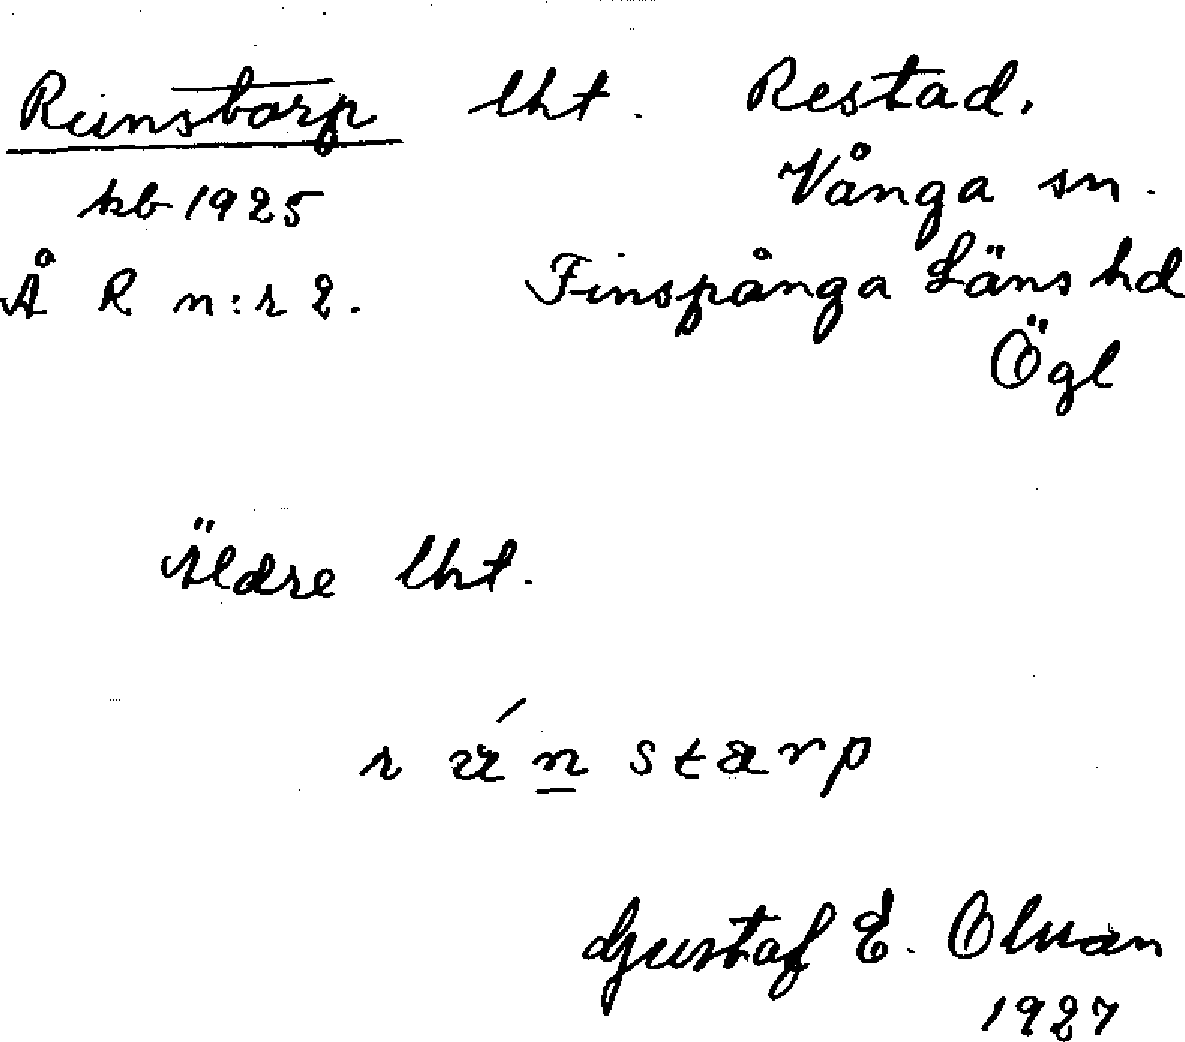 Runstorp lht. Restad.
kb 1925 Vånga sn.
Å R n:r 2. Finspånga Läns hd
Ögl
Äldre lht.
Gustaf E. Olman
1927